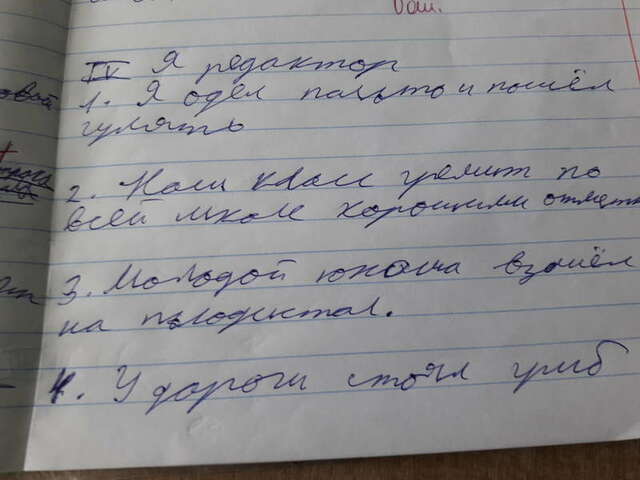 IV Я редактор
1. Я одел пальто и пошёл
гулять
2. Наш класс гремит по
всей школе хорошими
3. Молодой юноша взошёл
на пьедестал.
4. У дороги стоял гриб